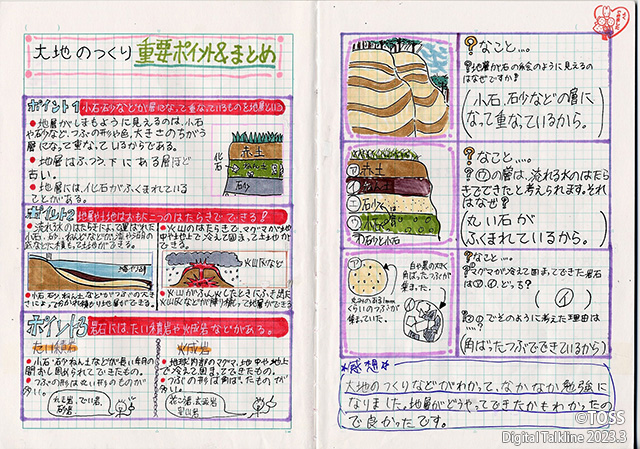 大地のつくり 重要ポイント&まとめ
ポイント1 小石・砂などが層になって重なっているものを地層という
●地層がしまもように見えるのは、小石
や砂など、つぶの形や色、大きさのちがう
層になって重なっているからである。
●地層はふつう、下にある層ほど
古い。
●地層には、化石がふくまれている
ことがある。
化石
赤土
ねん土
砂
ポイント2 地層や土地は大もと二つのはたらきでできる!
●流れる水のはたらきによって運ばれた
小石、砂、ねん土などが
●小石、砂、ねん土などがつぶの大き
さによって分かれて積もり地層ができる。
●火山のはたらきで、マグマが地
中や地上で冷えて固まって土地がで
きる。
火山灰
火山灰
●火山がふん火したときにふき出た
火山灰などが降り積って地層ができる
ポイント3 岩石には、たい積岩や火成岩などがある。
たい積岩
●小石、砂、ねん土などが長い年月の
間おし固められてできたもの。
●つぶの形は丸い形のものが
多い。
れき岩、でい岩、
砂岩
火成岩
●地球内部のマグマ、地中や地上
で冷えて固まってできたもの。
●つぶの形は角ばったものが
多い。
?なこと…。
?地層が右の絵のように見えるの
はなぜですか?
(小石、砂などの層に
なって重なっているから。)
ア 赤土
イ
ウ
?なこと…。
?㋒の層は、流れる水のはたら
きでできたと考えられます。それ
はなぜ?
(丸い石が
ふくまれているから。)
ア
白や黒の大きく
角ばったつぶが
集まった。
丸みのある1mm
くらいのつぶが
集まっていた。
イ
?なこと…。
?マグマが冷えて固まってできた岩石
は㋐、㋑、どっち?
(㋑)
?㋑のでどのように考えた理由は
…?
(角ばったつぶでできているから)
*感想*
大地のつくりなどがわかって、なかなか勉強に
なりました。地層がどうやってできたかもわかったの
で良かったです。
©TOSS
Digital Talkline 2023.3